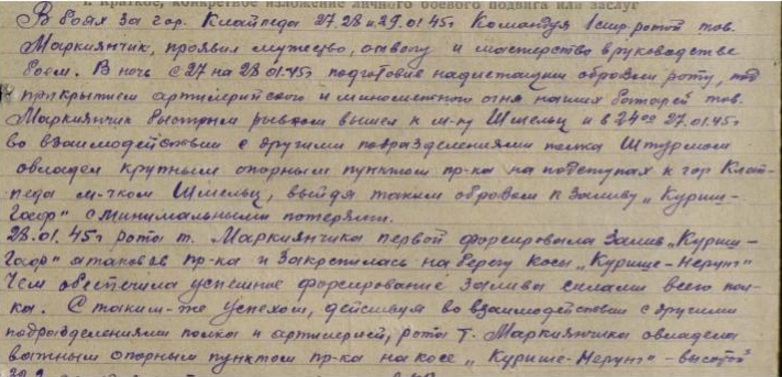 I. Краткое, конкретное изложение личного боевого подвига или заслуг
В боях за гор. Клайпеда 27.28 и 29.01.45г Командуя 1 стр. ротой тов.
Маркиянчик, проявил мужество, отвагу и мастерство в руководстве
боем. В ночь с 27 на 28.01.45г подготовив надлежащим образом роту, под
прикрытием артилерийского и минометного огня наших батарей тов.
Маркиянчик быстрым рывком вышел к м-ку Шмельц и в 24 00 27.01.45г
во взаимодействии с другими подразделениями полка Штурмом
овладел крупным опорным пунктом пр-ка на подступах к гор Клай-
педа м-чком Шмельц, выйдя таким образом к Заливу „Куриш-
Гаор" с минимальными потерями.
28.01.45г рота т. Маркиянчика первой форсировала Залив „Куриш-
Гаор" атаковав пр-ка и Закрепилась на берегу косы „Курише-Нерунг"
Чем обеспечила успешное форсирование Залива силами всего пол-
ка. С таким-же успехом, действуя во взаимодействии с другими
подразделениями полка и артилерией, рота т. Маркиянчика овладела
важным опорным пунктом пр-ка на косе „Курише-Нерунг" – высотой